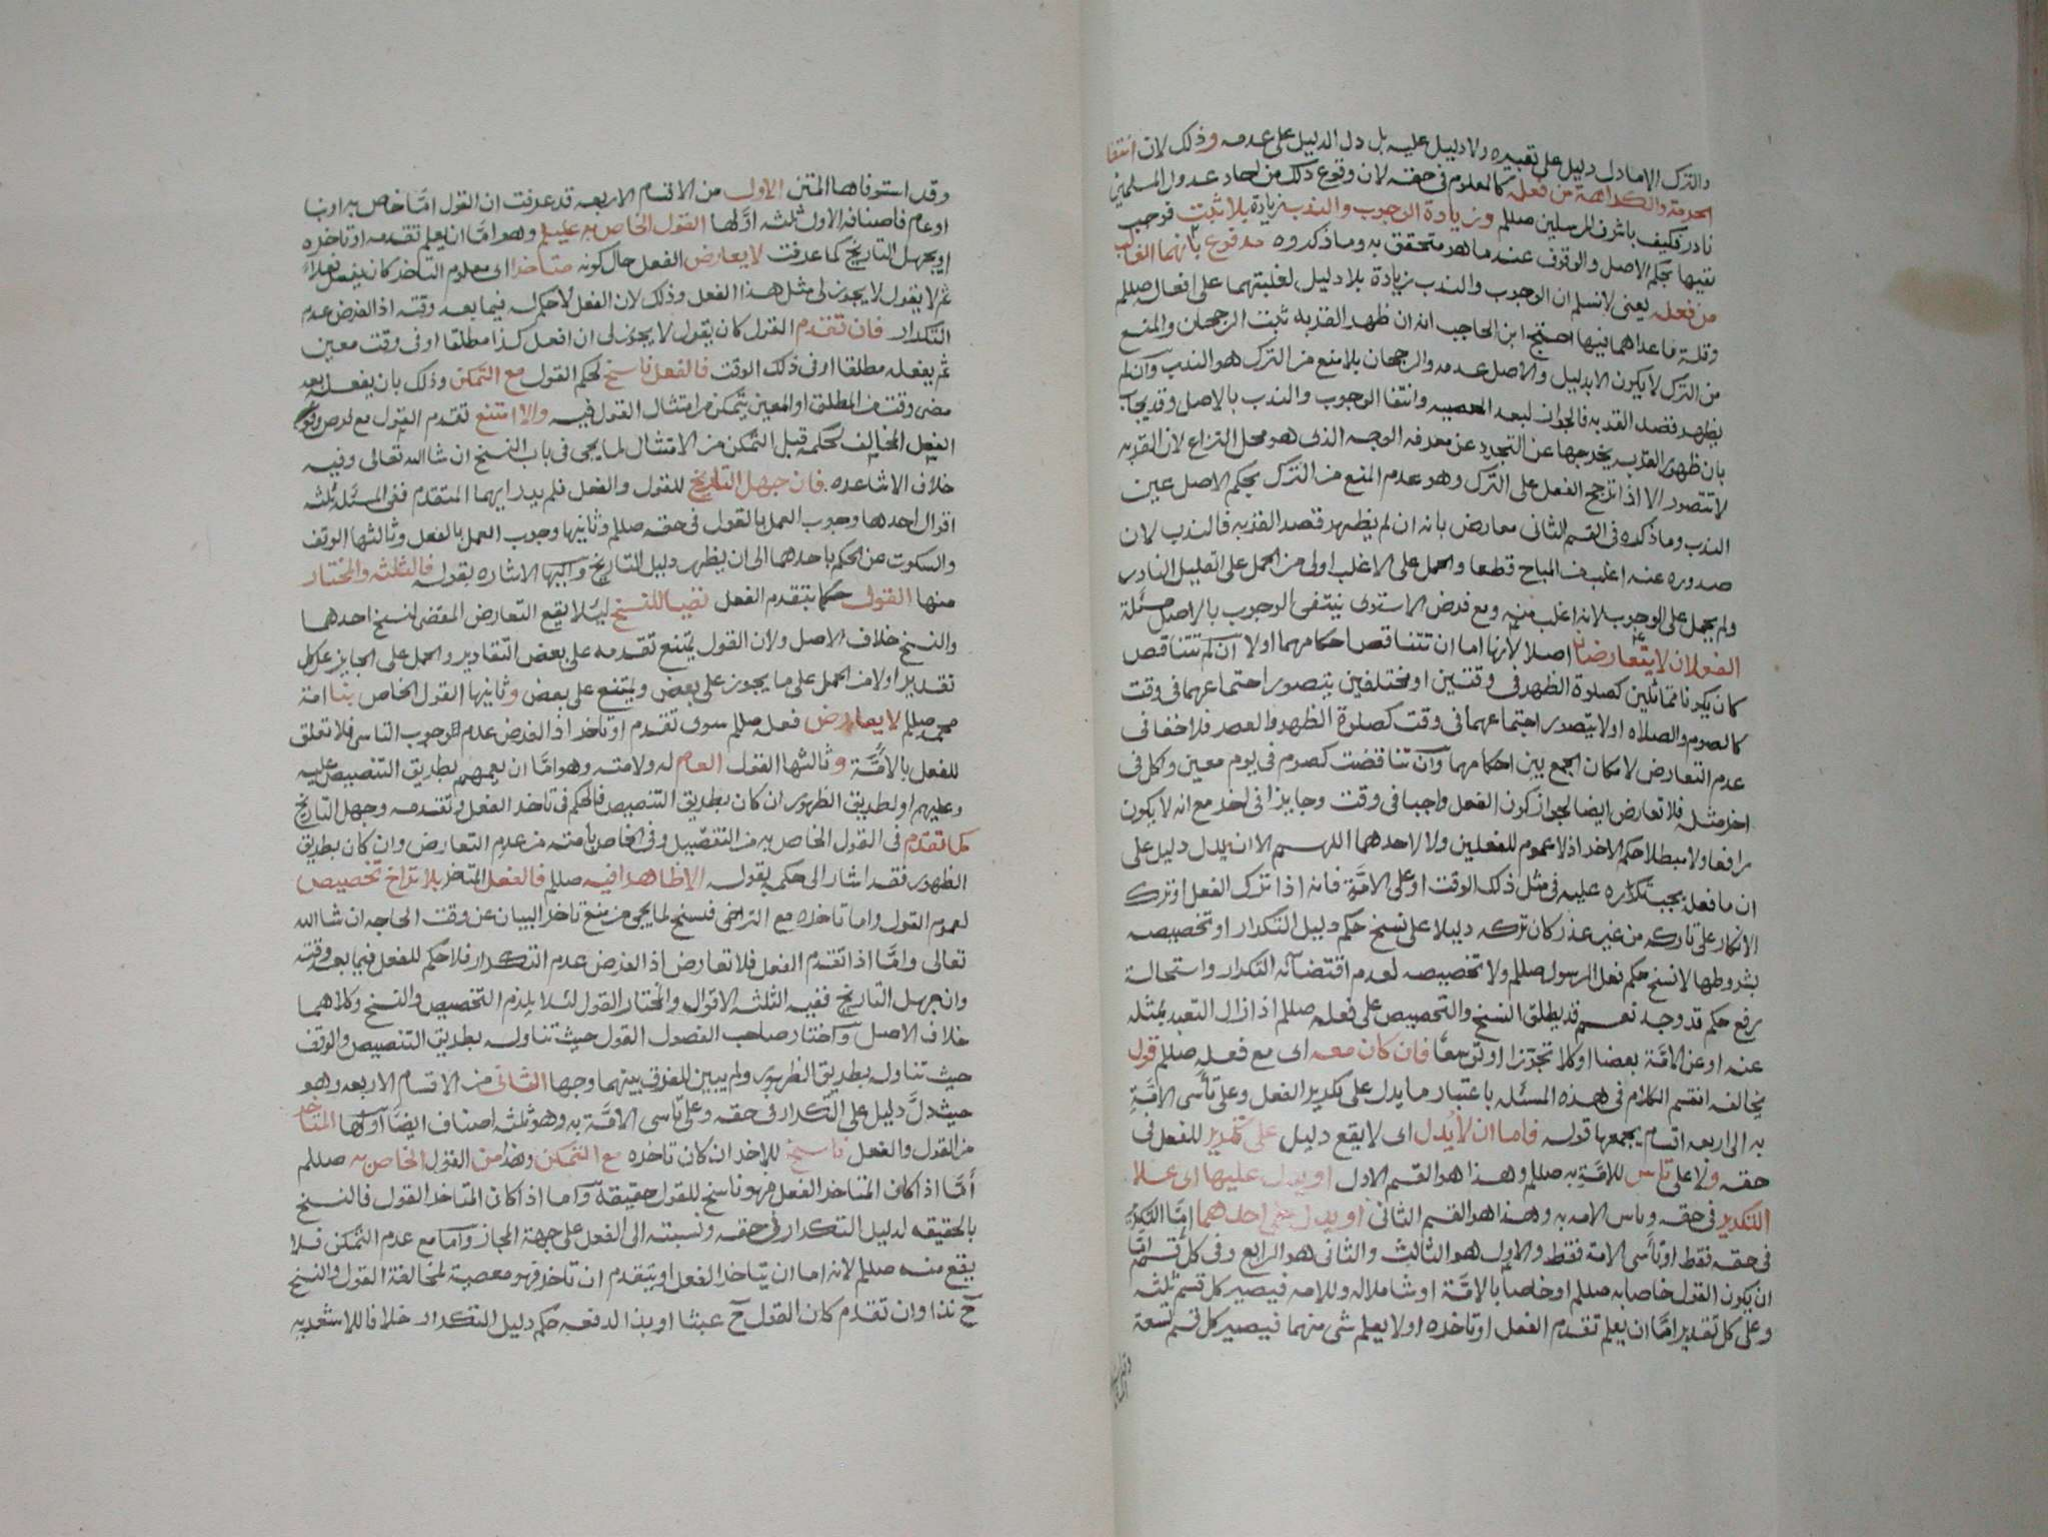 والترك الا ما دل دليل على تعبيره ولا دليل عليه بل دل الدليل على عدمه وذلك لان انتفا
الحرمة والكراهة من فعله كالمعلوم في حقه لان وقوع ذلك من احاد عدول المسلمين
نادر فكيف باشرف المرسلين صللم وزيادة الوجوب والندب زيادة بلا ثبت فوجب
نفيها بحكم الاصل والوقوف عند ما هو متحقق به وما ذكروه مدفوع بانهما الغالب
من فعله يعنى لا نسلم ان الوجوب والندب زيادة بلا دليل لغلبتهما على افعاله صللم
وقلة ما عداهما فيها احتج ابن الحاجب انه ان ظهر القربه ثبت الرجحان والمنع
من الترك لا يكون الا بدليل والاصل عدمه والرجحان بلا منع من الترك هو الندب وان لم
يظهر قصد القربه فالجواز لبعد المعصيه وانتفا الوجوب والندب بالاصل وقد يجاب
بان ظهور القربه يخرجها عن التجرد عن معرفه الوجه الذى هو محل النزاع لان القربه
لا تتصور الا اذا ترجح الفعل على الترك وهو عدم المنع من الترك بحكم الاصل عين
الندب وما ذكره في القسم الثانى معارض بانه ان لم يظهر قصد القربه فالندب لان
صدوره عنه اغلب من المباح قطعا والحمل على الاغلب اولى من الحمل على القليل النادر
ولم يحمل على الوجوب لانه اغلب منه ومع فرض الاستوى ينتفى الوجوب بالاصل مسئلة
الفعلان لا يتعارضان اصلا لانها اما ان تتناقض احكامهما اولا ان لم تتناقض
كان يكونا متماثلين كصلوة الظهر في وقتين او مختلفين يتصور اجتماعهما في وقت
كالصوم والصلاه او لا يتصور اجتماعهما في وقت كصلوة الظهر والعصر فلا خفا في
عدم التعارض لامكان الجمع بين احكامهما وان تناقضت كصوم في يوم معين واكل في
اخر مثله فلا تعارض ايضا لجواز كون الفعل واجبا في وقت وجايزا في اخر مع انه لا يكون
رافعا ولا مبطلا حكم الاخر اذ لا عموم للفعلين ولا لاحدهما اللهم الا ان يدل دليل على
ان ما فعل يجب تكراره عليه في مثل ذلك الوقت او على الامة فانه اذا ترك الفعل او ترك
الانكار على تاركه من غير عذر كان تركه دليلا على نسخ حكم دليل التكرار او تخصيصه
بشروطها لا نسخ حكم فعل الرسول صللم ولا تخصيصه لعدم اقتضائه التكرار واستحالة
رفع حكم قد وجد نعم قد يطلق النسخ والتخصيص على فعله صللم اذا زال التعبد بمثله
عنه او عن الامة بعضا او كلا تجوزا او توسعا فان كان معه اى مع فعله صللم قول
يخالفه انقسم الكلام في هذه المسئله باعتبار ما يدل على تكرير الفعل وعلى تأسى الامة
به الى اربعه اقسام يجمعها قوله فاما ان لا يدل اى لا يقع دليل على تكرير للفعل في
حقه ولا على تاس للامة به صللم وهذا هو القسم الاول او يدل عليها اى علا
التكرير في حقه وتاس الامه به وهذا هو القسم الثانى او يدل على احدهما اما التكرير
في حقه فقط او تاسى الامة فقط والاول هو الثالث والثانى هو الرابع وفى كل قسم اما
ان يكون القول خاصا به صللم او خاصا بالامة او شاملا له وللامه فيصير كل قسم ثلثه
وعلى كل تقدير اما ان يعلم تقدم الفعل او تاخره او لا يعلم شى منهما فيصير كل قسم تسعة
وقد استوفاها المتن الاول من الاقسام الاربعه قد عرفت ان القول اما خاص به او بنا
او عام فاصنافه الاول ثلثه اولها القول الخاص به عليلم وهو اما ان يعلم تقدمه او تاخره
او يجهل التاريخ كما عرفت لا يعارض الفعل حال كونه متاخرا اى معلوم التاخر كان يفعل فعلا
ثم لا يقول لا يجوز لى مثل هذا الفعل وذلك لان الفعل لا حكم له فيما بعد وقته اذ الفرض عدم
التكرار فان تقدم القول كان يقول لا يجوز لى ان افعل كذا مطلقا او في وقت معين
ثم يفعله مطلقا او في ذلك الوقت فالفعل ناسخ لحكم القول مع التمكن وذلك بان يفعل بعد
مضى وقت من المطلق او المعين يتمكن من امتثال القول فيه والا امتنع تقدم القول مع فرض وقوع
الفعل المخالف لحكمه قبل التمكن من الامتثال لما يجى في باب النسخ ان شا الله تعالى وفيه
خلاف الاشاعره فان جهل التاريخ للقول والفعل فلم يدر ايهما المتقدم ففى المسئله ثلثه
اقوال احدها وجوب العمل بالقول في حقه صللم وثانيها وجوب العمل بالفعل وثالثها الوقف
والسكوت عن الحكم باحدهما الى ان يظهر دليل التاريخ واليها الاشاره بقوله فالثلثه والمختار
منها القول حكما بتقدم الفعل نفيا للنسخ ليلا يقع التعارض المقضى لنسخ احدهما
والنسخ خلاف الاصل ولان القول يمتنع تقدمه على بعض التقادير والحمل على الجايز على كل
تقدير اولا من الحمل على ما يجوز على بعض ويمتنع على بعض وثانيها القول الخاص بنا امة
محمد صللم لا يعارض فعله صللم سوى تقدم او تاخر اذ الفرض عدم وجوب التاسى فلا تعلق
للفعل بالامة وثالثها القول العام له ولامته وهو اما ان يعمهم بطريق التنصيص عليه
وعليهم او بطريق الظهور ان كان بطريق التنصيص فالحكم في تاخر الفعل وتقدمه وجهل التاريخ
كما تقدم في القول الخاص به من التفصيل وفى الخاص بامته من عدم التعارض وان كان بطريق
الظهور فقد اشار الى حكمه بقوله الا ظاهرا فيه صللم فالفعل المتاخر بلا تراخ تخصيص
لعموم القول واما تاخره مع التراخى فنسخ لما يجى من منع تاخر البيان عن وقت الحاجه ان شا الله
تعالى واما اذا تقدم الفعل فلا تعارض اذ الفرض عدم التكرار فلا حكم للفعل فيما بعد وقته
وان جهل التاريخ ففيه الثلثه الاقوال والمختار القول لئلا يلزم التخصيص والنسخ وكلاهما
خلاف الاصل واختار صاحب الفصول القول حيث تناوله بطريق التنصيص والوقف
حيث تناوله بطريق الظهور ولم يبين للفرق بينهما وجها الثانى من الاقسام الاربعه وهو
حيث دل دليل على التكرار في حقه وعلى تاسى الامة به وهو ثلثه اصناف ايضا اولها المتاخر
من القول والفعل ناسخ للاخر ان كان تاخره مع التمكن وهذا من القول الخاص به صللم
أما اذا كان المتاخر الفعل فهو ناسخ للقول حقيقة واما اذا كان المتاخر القول فالنسخ
بالحقيقه لدليل التكرار في حقه ونسبته الى الفعل على جهة المجاز واما مع عدم التمكن فلا
يقع منه صللم لانه اما ان يتاخر الفعل او يتقدم ان تاخر فهو معصية لمخالفة القول والنسخ
ح بدا وان تقدم كان القول ح عبثا او بدا لدفعه حكم دليل التكرار خلافا للاشعريه